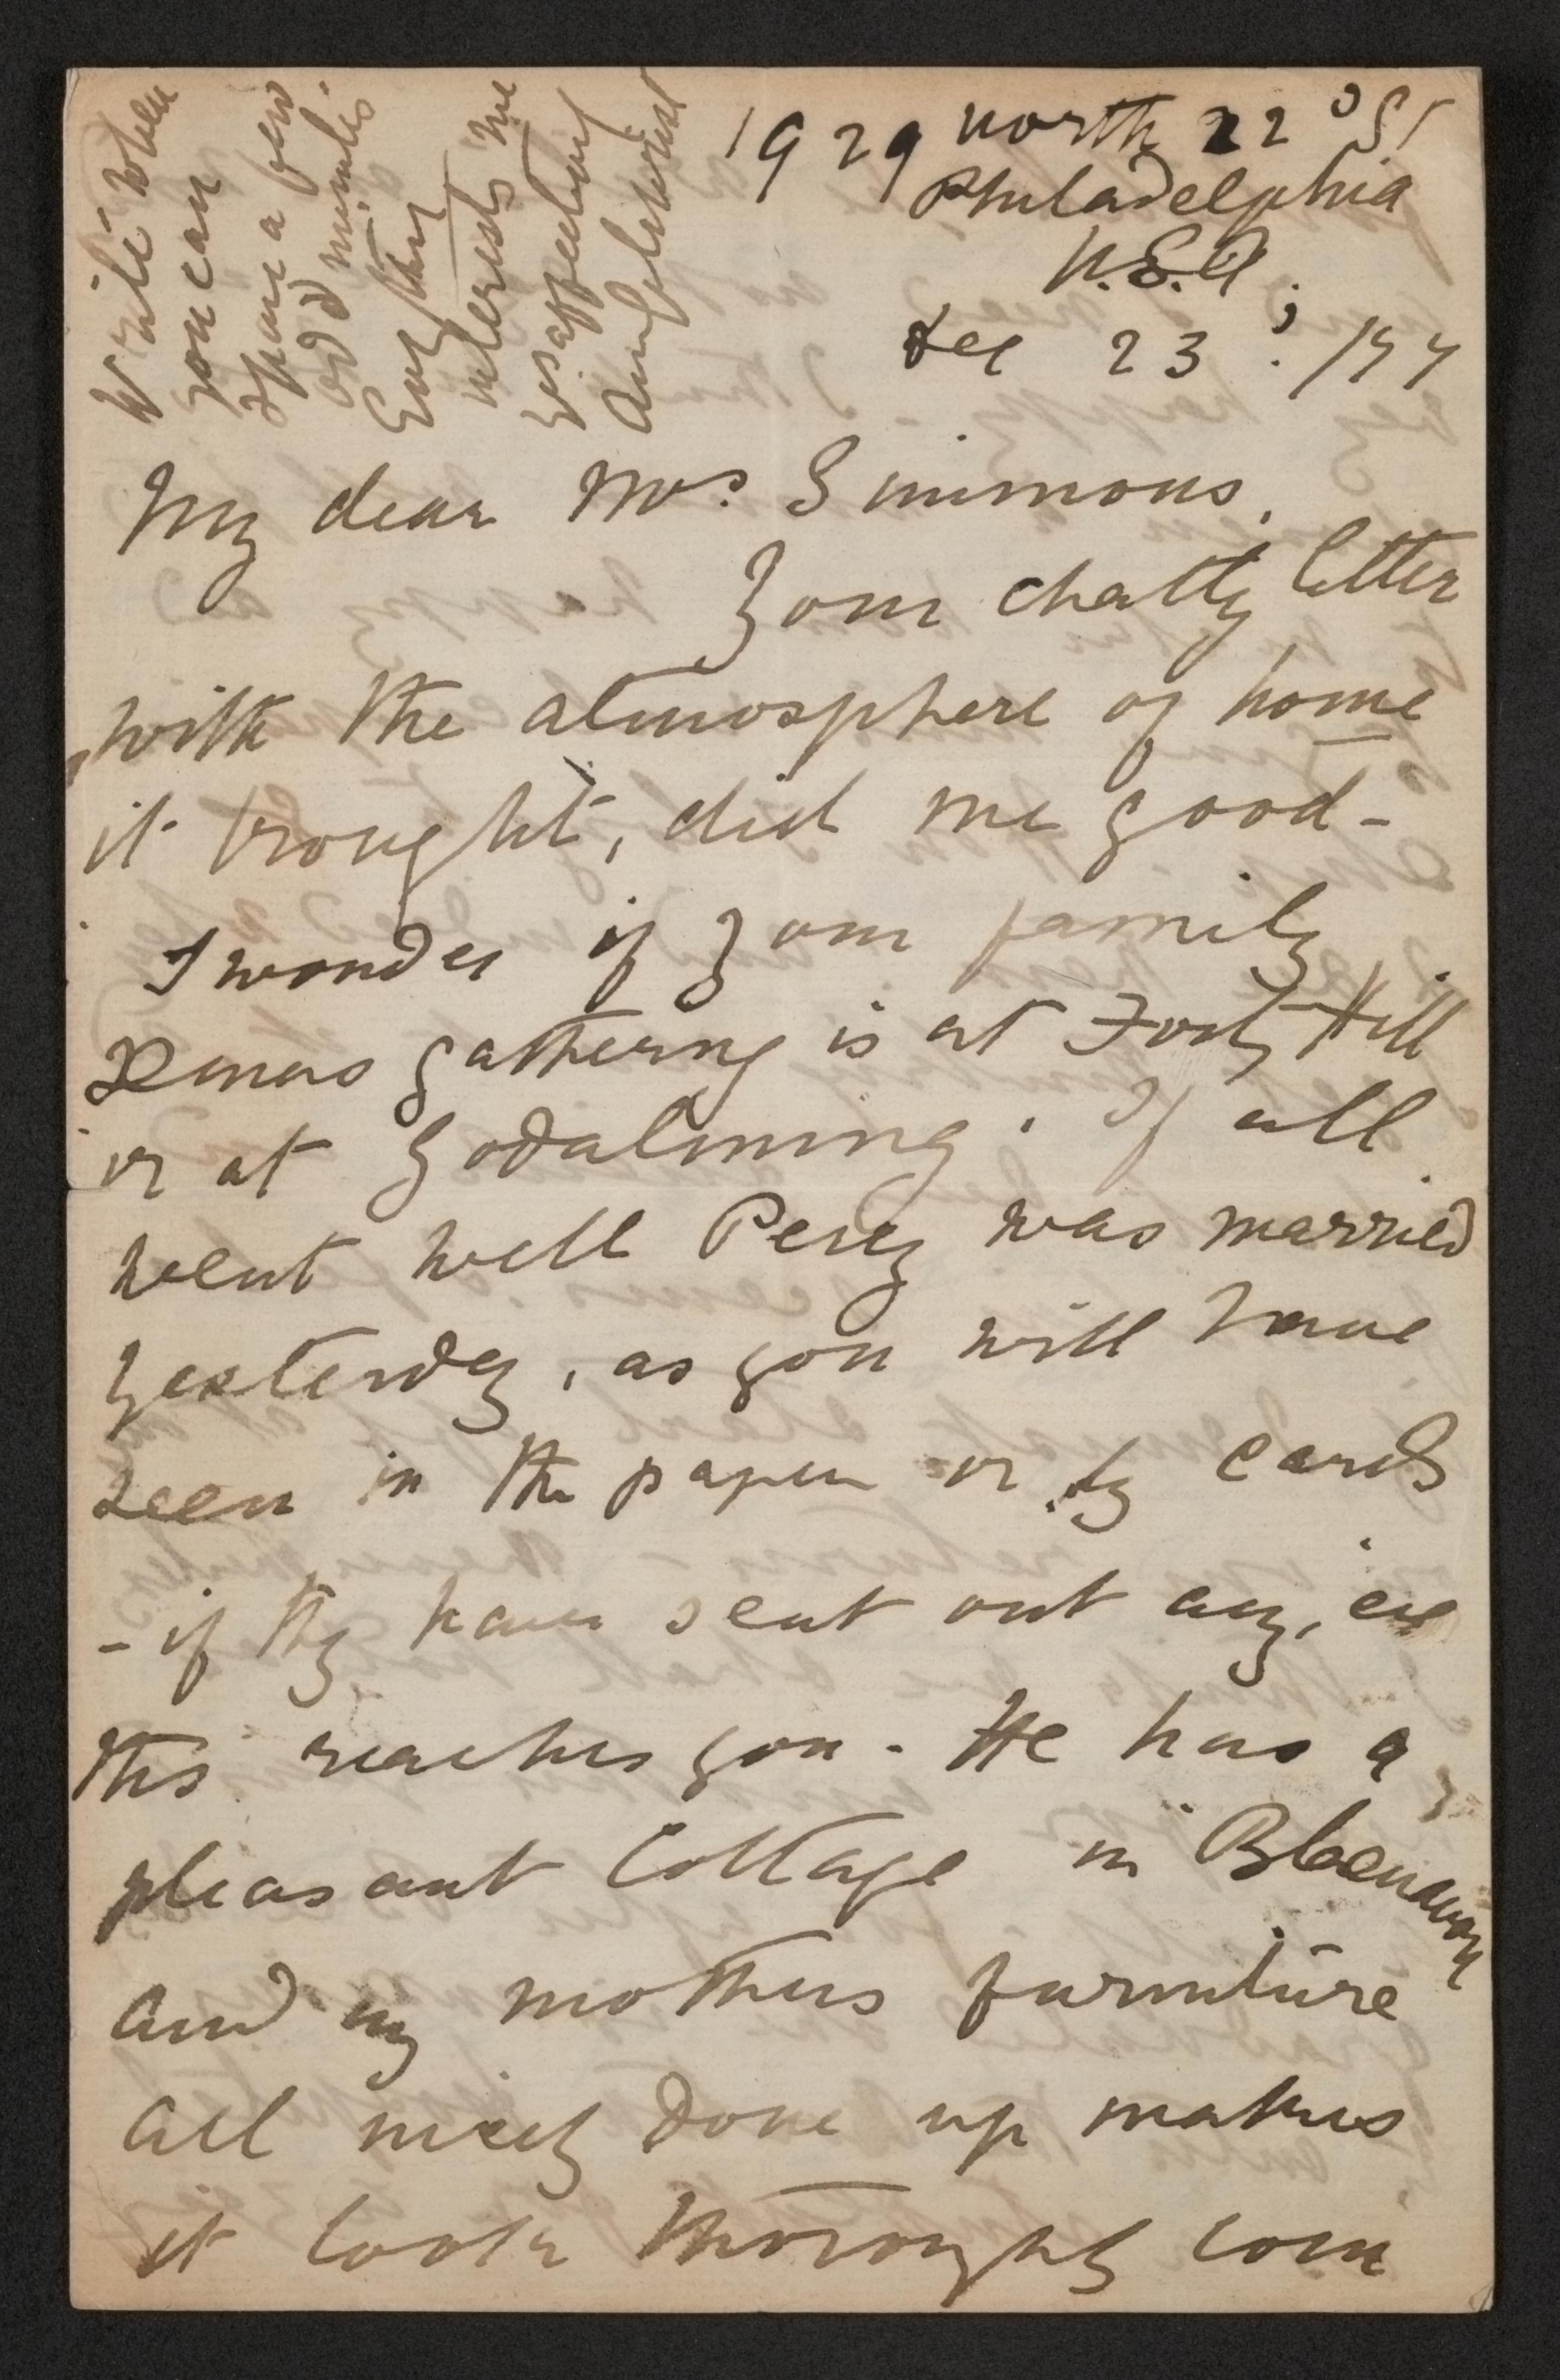 1929 north 22d St
Philadelphia
U.S.A.
Dec 23d. /77
My dear Mrs Simmons,
Your chatty letter
with the atmosphere of home
it brought, did me good -
I wonder if your family
Xmas gathering is at Forty Hill
or at Godalming. If all
went well Percy was married
yesterday, as you will have
seen in the paper or by cards
- if they have sent out any, ere
this reaches you. He has a
pleasant cottage in Blaenavon
and my mothers furniture
all nicely done up makes
it look thoroughly com
Write when
you can
spare a few
odd minutes.
Everything
interests me
Yrs affectionately
Anne Gilchrist